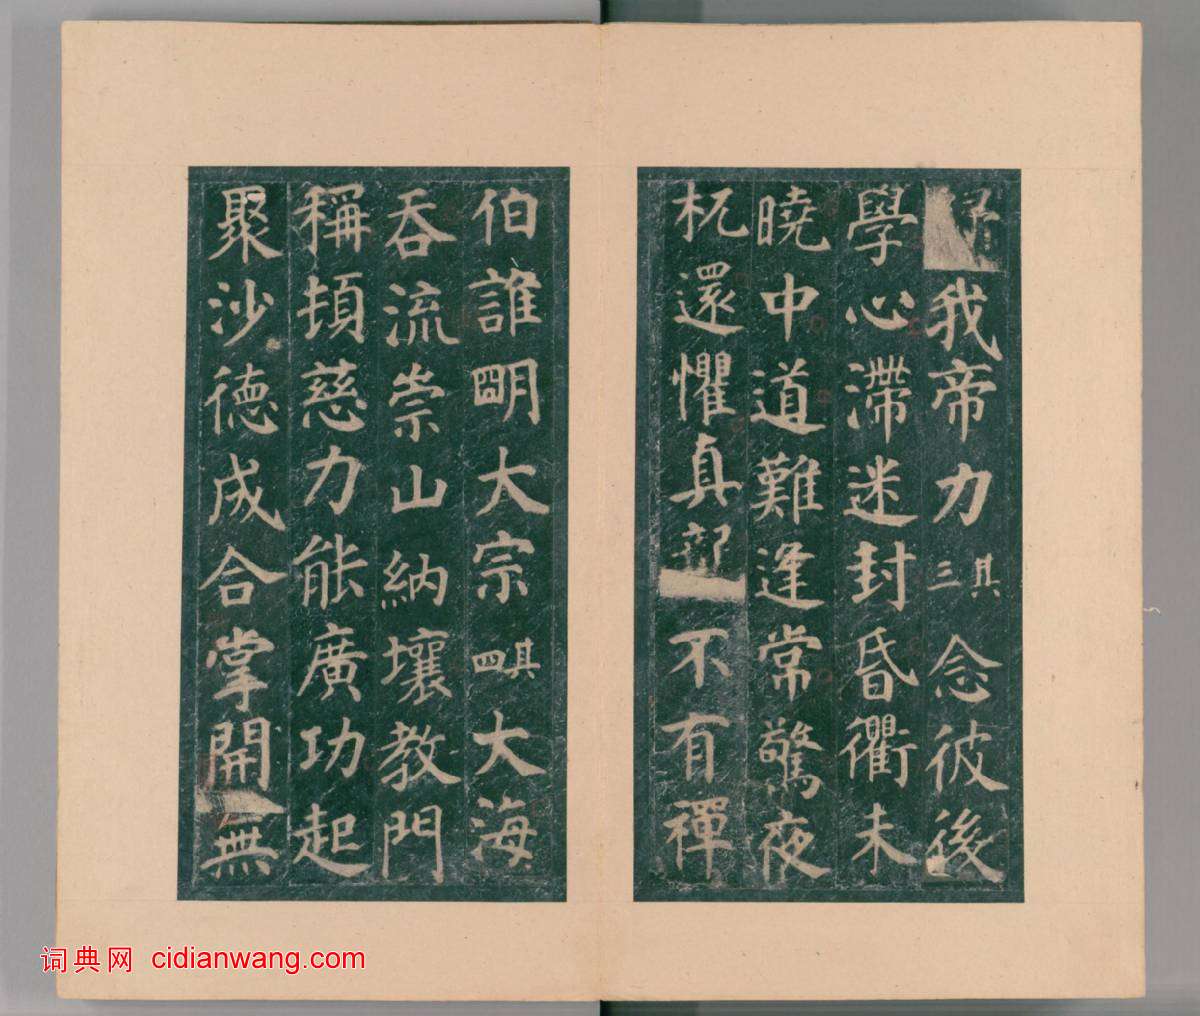 我帝力其三念彼後
學心滯迷封昏衢未
曉中道難逢常驚夜
杌還懼真不有禪
伯誰明大宗其四大海
吞流崇山納壤教門
稱頓慈力能廣功起
聚沙德成合掌開無
词典网 cidianwang.com